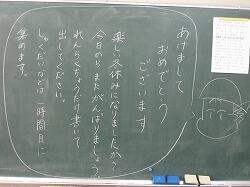 あけまして
おめでとう
ございます
楽しい冬休みになりましたか？
今日からまたがんばりましょう。
れんらくちょうだけ書いて
出してください。
しゅくだいなどは一時間目に
集めます。